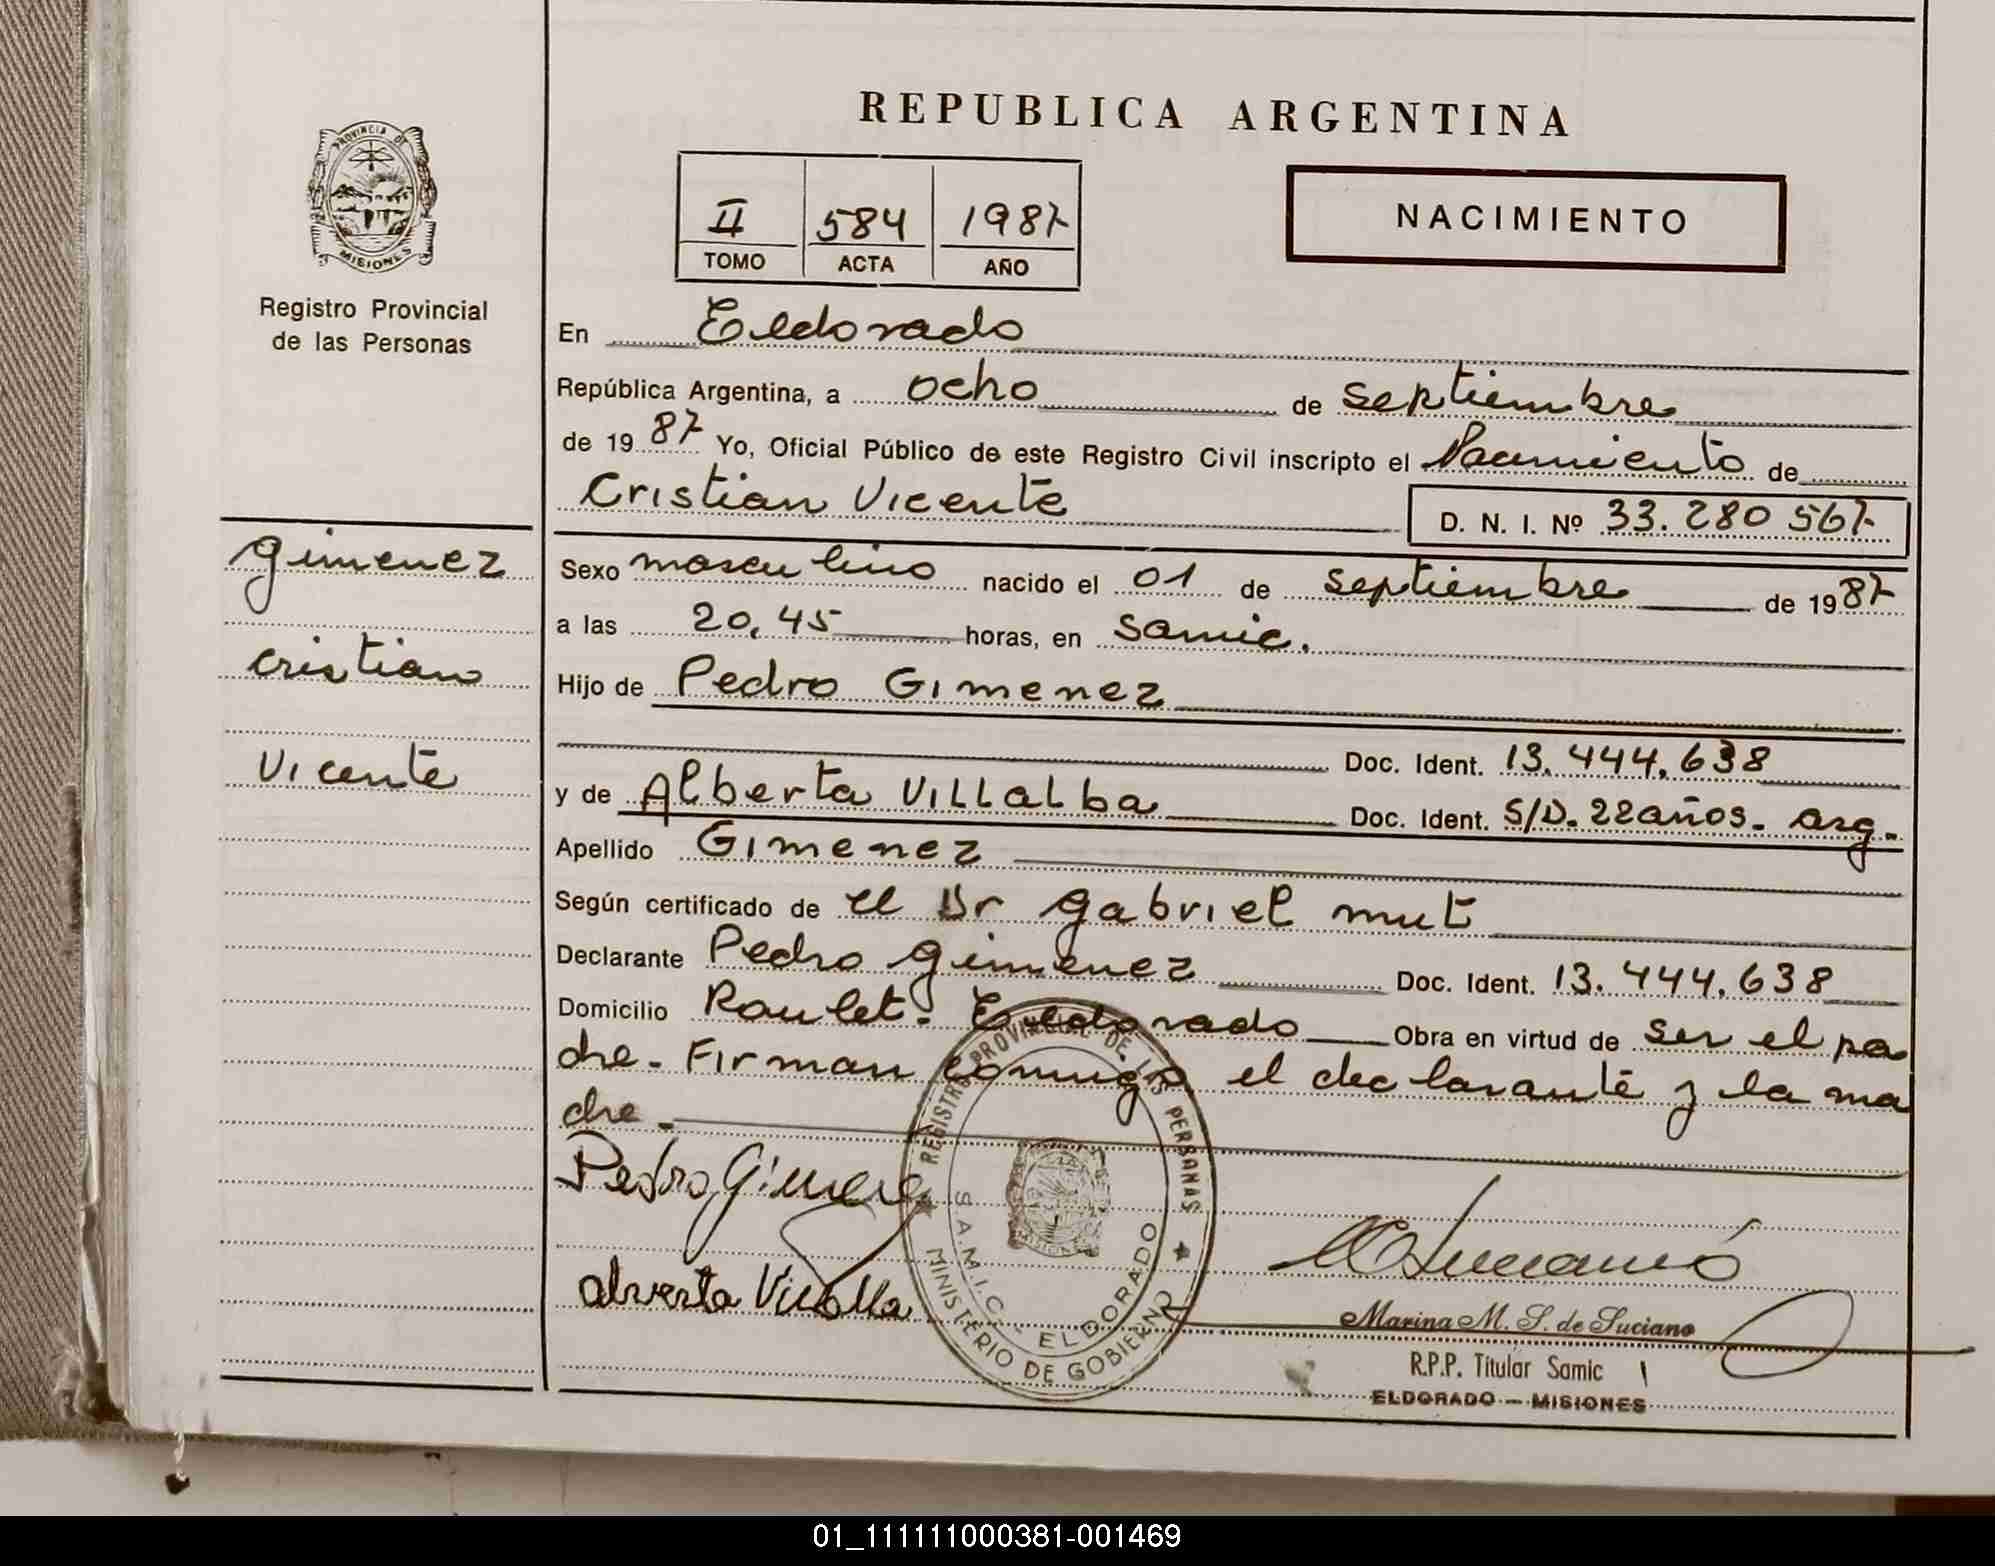 REPUBLICA ARGENTINA
PROVINCIA DE
MISIONES
Registro Provincial
de las Personas
II 584 1987
TOMO ACTA AÑO
NACIMIENTO
En Eldorado
República Argentina, a ocho de septiembre
de 1987 Yo, Oficial Público de este Registro Civil inscripto el Nacimiento de
Cristian Vicente D. N. I. Nº 33.280 567
gimenez
cristian
Vicente
Sexo masculino nacido el 01 de septiembre de 1987
a las 20,45 horas, en Samic.
Hijo de Pedro Gimenez
Doc. Ident. 13.444.638
y de Alberta Villalba Doc. Ident. S/D. 22años. arg.
Apellido Gimenez
Según certificado de el Dr gabriel mut
Declarante Pedro gimenez Doc. Ident. 13.444.638
Domicilio Roulet. Eldorado Obra en virtud de ser el pa
dre. Firman conmigo el declarante y la ma
dre.
Pedro Gimenez
alverta Villalla
REGISTRO PROVINCIAL DE LAS PERSONAS
MINISTERIO DE GOBIERNO
S.A.M.I.C. - ELDORADO
MISIONES
Marina M. S. de Suciano
R.P.P. Titular Samic
ELDORADO — MISIONES
01_111111000381-001469